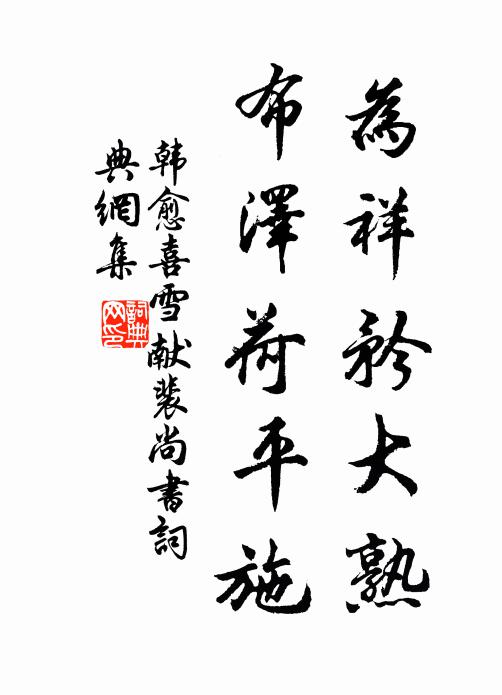 為祥矜大熟
布澤荷平施
韓愈喜雪献裴尚書詞
典網集
詞典
网印